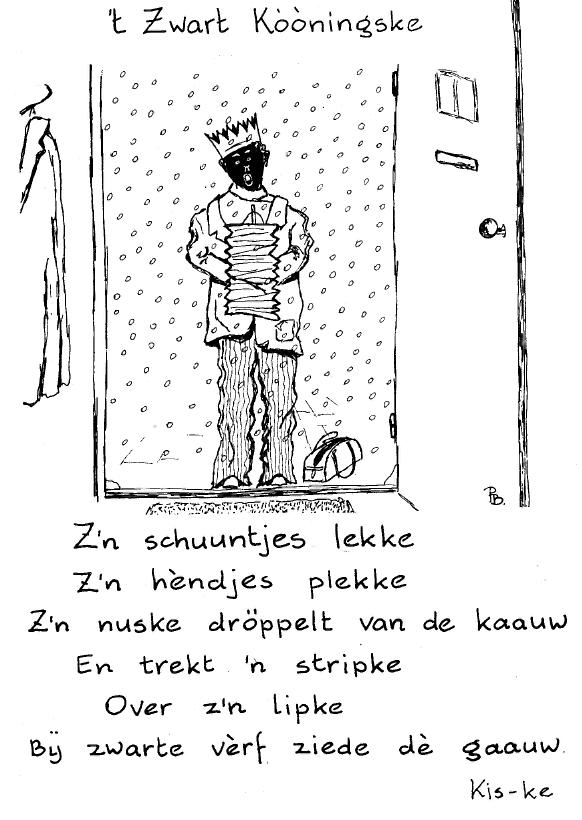 't Zwart Kòòningske
PB.
Z'n schuuntjes lekke
Z'n hèndjes plekke
Z'n nuske dröppelt van de kaauw
En trekt 'n stripke
Over z'n lipke
Bÿ zwarte vèrf ziede dè gaauw.
Kis-ke